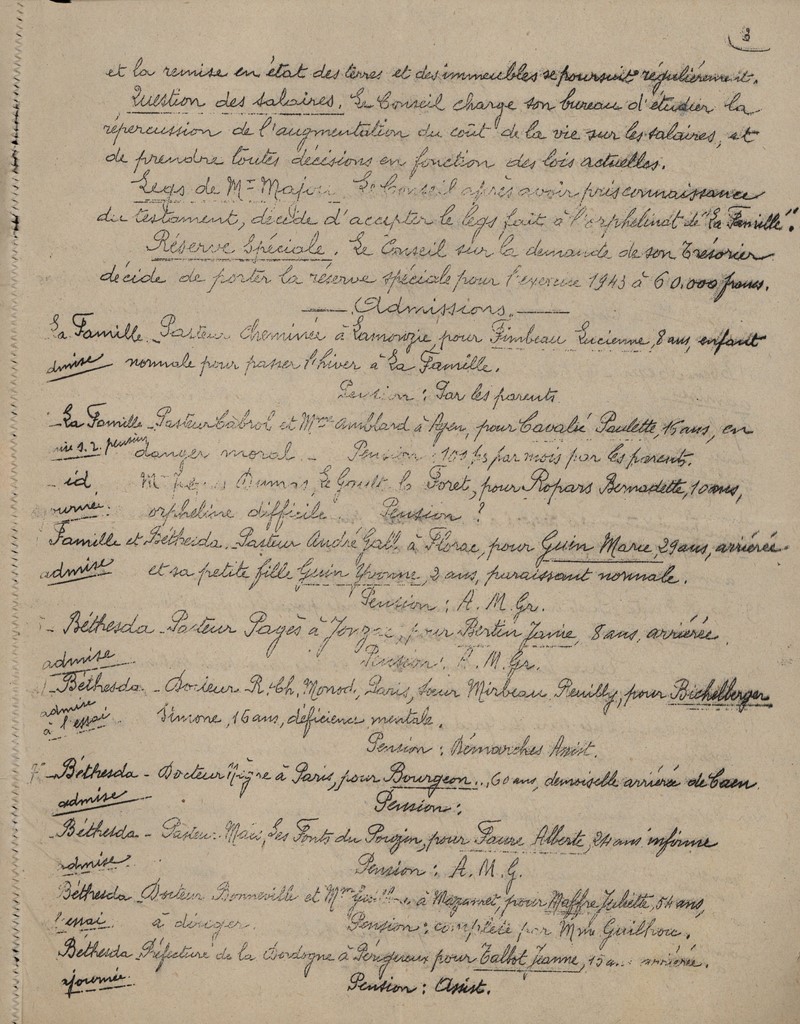 3
et la remise en état des terres et des immeubles se poursuit régulièrement.
Question des salaires. Le Conseil charge son bureau d'étudier la
répercussion de l'augmentation du coût de la vie sur les salaires, et
de prendre toutes décisions en fonction des lois actuelles.
Legs de Mr Majou Le Conseil après avoir pris connaissance
du testament, décide d'accepter le legs fait à l'orphelinat de "La Famille".
Réserve Spéciale. Le Conseil sur la demande de son Trésorier
décide de porter la réserve spéciale pour l'exercice 1943 à 60.000 francs.
Admissions.
La Famille - Pasteur Cheminée à Lamonzie, pour Fimbeau Lucienne, 8 ans, enfant
admise normale pour passer l'hiver à La Famille.
Pension : Par les parents
La Famille - Pasteur Cabrol et Mme Amblard à Agen, pour Cavalié Paulette, 15 ans, en
s. r. pension danger moral - Pension : 101 frs par mois par les parents.
- id Dumas, Le Gault la Foret, pour Ropars Bernadette, 10 ans,
ournée: orpheline difficile. Pension ?
Famille et Béthesda - Pasteur André Gall à Florac, pour Guin Marie, 29 ans, arriérée
admise et sa petite fille Guin Yvonne, 2 ans, paraissant normale.
Pension : A. M. Gr.
- Béthesda - Pasteur Pagès à Jonzac, pour Bertin Janie, 8 ans, arriérée
admise Pension : A. M. Gr.
- Béthesda - Docteur R. Ch. Monod, Paris, soeur Mirbeau Reuilly, pour Bichelberger
admise à l'essai Simone, 16 ans, déficience mentale.
Pension : Démarches Assist.
- Béthesda - Docteur Nègre à Paris, pour Bourgeon.., 60 ans, demoiselle arriérée de Caen
admise Pension :
- Béthesda - Pasteur Les Fonts du Pouzin, pour Faure Alberte, 24 ans infirme
admise Pension : A. M. G.
Béthesda - Docteur Bonneville et Mme à Mazamet, pour Maffre Juliette, 54 ans,
l'essai à diriger. Pension : complétée par Mme Guilhou.
Béthesda - Préfecture de la Dordogne à Périgueux pour Talbot Jeanne, 15 arriérée.
ajournée Pension : Assist.